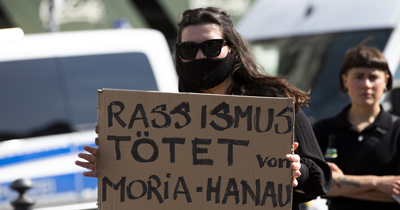 RASSISMUS
TÖTET von
MORIA-HANAU